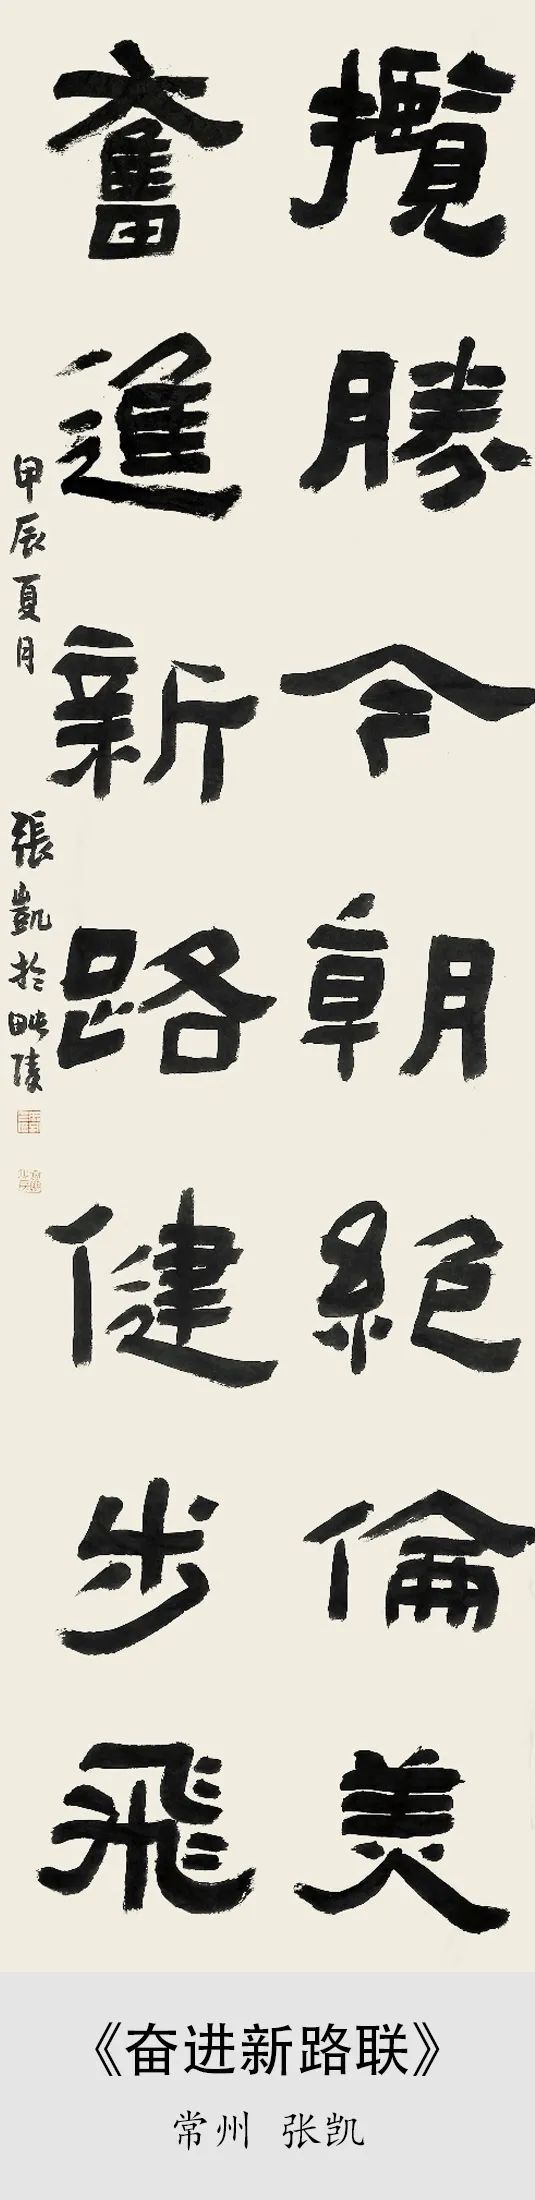 攬勝今朝絕倫美
奮進新路健步飛
甲辰夏月 張凱於毗陵
《奋进新路联》
常州 张凯